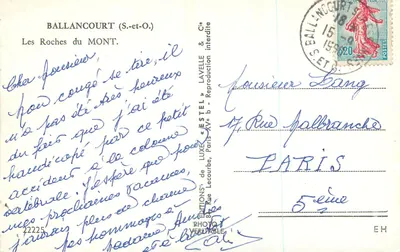 BALLANCOURT (S.-et-O.)
Les Roches du MONT.
Cher Monsieur,
mon congé se tire, il
n'a pas été très heureux
du fait que j'ai été
handicapé par ce petit
accident à la colonne
vertébrale. J'espère que pour
mes prochaines vacances,
j'aurai plus de chance
mes hommages à
Madame
22225
ÉDITIONS DE LUXE "ESTEL" LAVELLE & Cie
Rue Lecourbe, Paris XVe - Reproduction interdite
PHOTO
VÉRITABLE
BALLANCOURT
18
15-9
S.-ET-O.
0,20
Monsieur Lang
7, Rue Malbranche
PARIS
5ème
EH